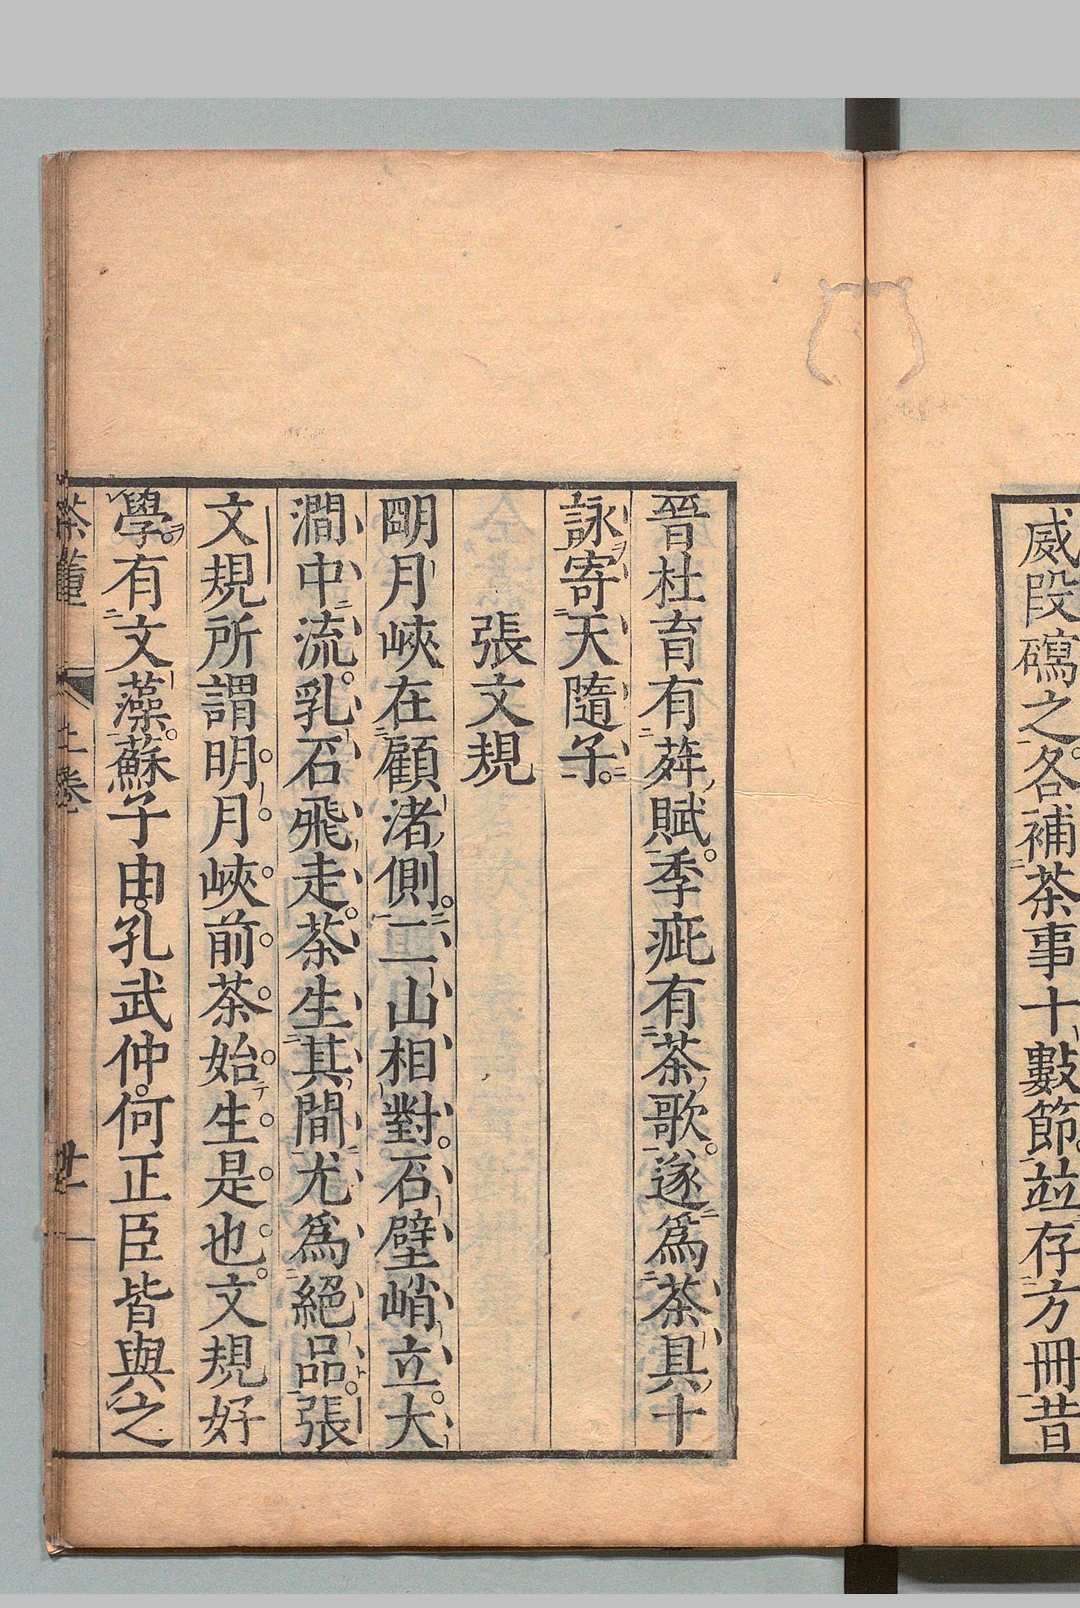 威段磶之各補茶事十數節並存方冊昔
晉杜育有荈賦季疵有茶歌遂爲茶具十
詠寄天隨子
張文規
朙月峽在顧渚側二山相對石壁峭立大
澗中流乳石飛走茶生其間尤爲絕品張
文規所謂明月峽前茶始生是也文規好
學有文藻蘇子由孔武仲何正臣皆與之
茶董 上卷 世